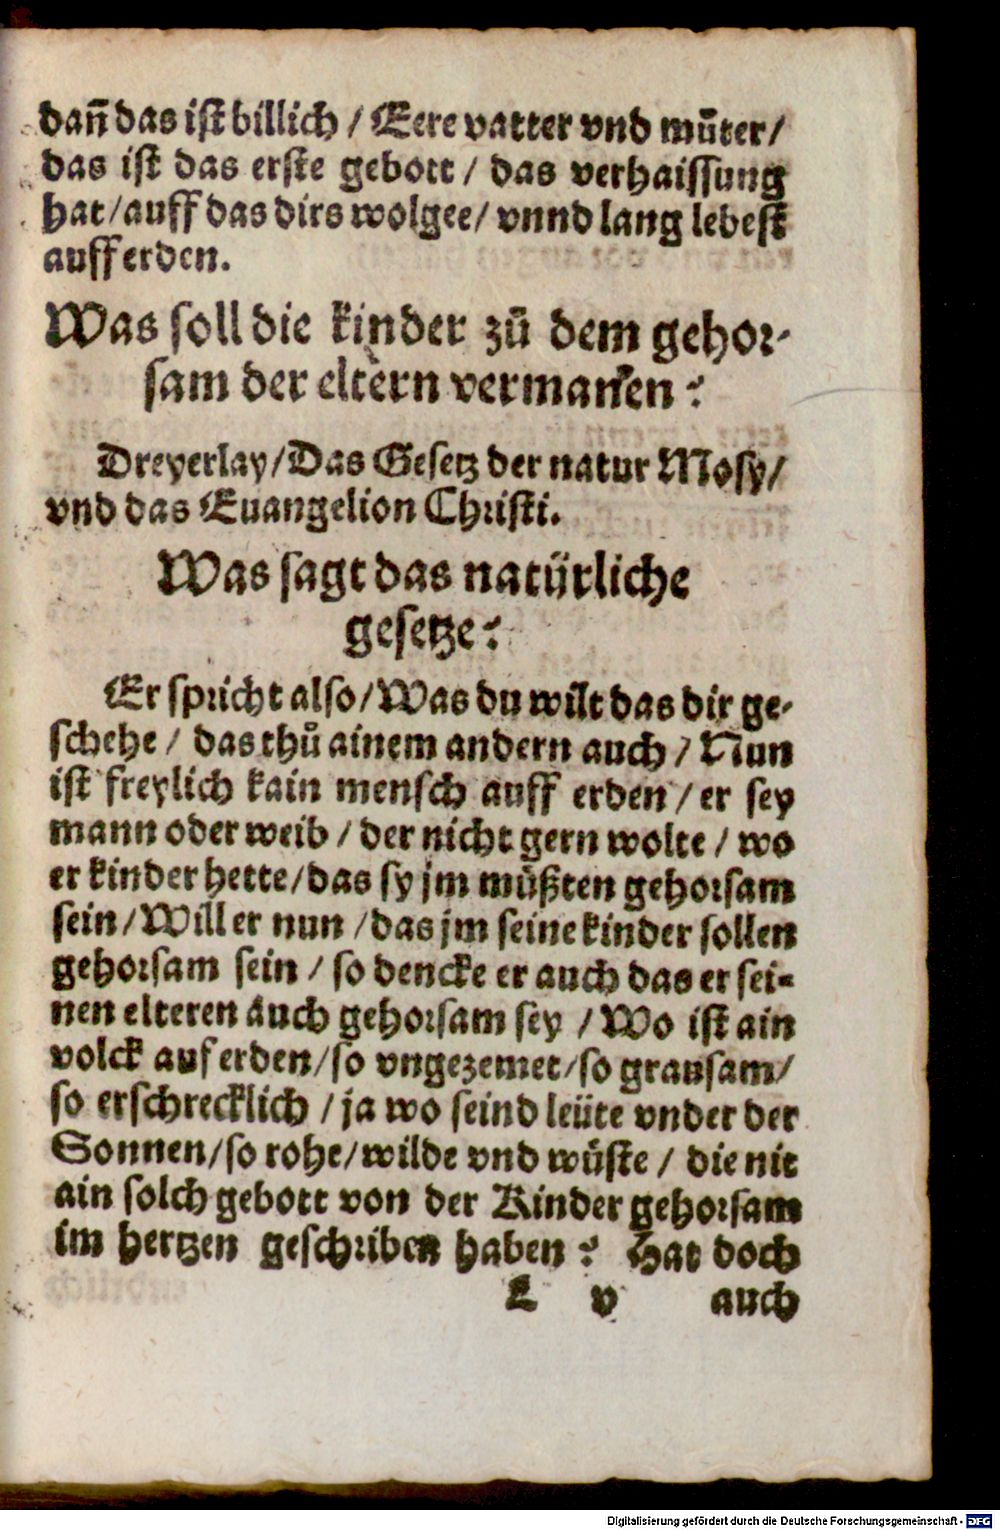 dañ das ist billich / Eere vatter vnd můter /
das ist das erste gebott / das verhaissung
hat / auff das dirs wolgee / vnnd lang lebest
auff erden.
Was soll die kinder zů dem gehor-
sam der eltern vermanen?
Dreyerlay / Das Gesetz der natur Mosy /
vnd das Euangelion Christi.
Was sagt das natürliche
gesetze?
Er spricht also / Was du wilt das dir ge-
schehe / das thů ainem andern auch / Nun
ist freylich kain mensch auff erden / er sey
mann oder weib / der nicht gern wolte / wo
er kinder hette / das sy jm můßten gehorsam
sein / Will er nun / das jm seine kinder sollen
gehorsam sein / so dencke er auch das er sei-
nen elteren auch gehorsam sey / Wo ist ain
volck auf erden / so vngezemet / so grausam /
so erschrecklich / ja wo seind leüte vnder der
Sonnen / so rohe / wilde vnd wůste / die nit
ain solch gebott von der Kinder gehorsam
im hertzen geschriben haben? Hat doch
L v auch
Digitalisierung gefördert durch die Deutsche Forschungsgemeinschaft - DFG